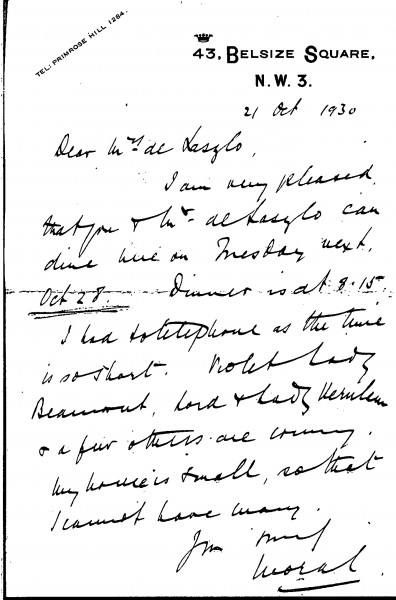 TEL: PRIMROSE HILL 1284.
43, BELSIZE SQUARE,
N.W. 3.
21 Oct 1930
Dear Mrs de Laszlo,
I am very pleased
that you & Mr. de Laszlo can
dine here on Tuesday next,
Oct 28. Dinner is at 8.15.
I had to telephone as the time
is so short. Violet Lady
Beaumont, Lord & Lady Verulam
& a few others are coming.
My house is small, so that
I cannot have many.
Yrs